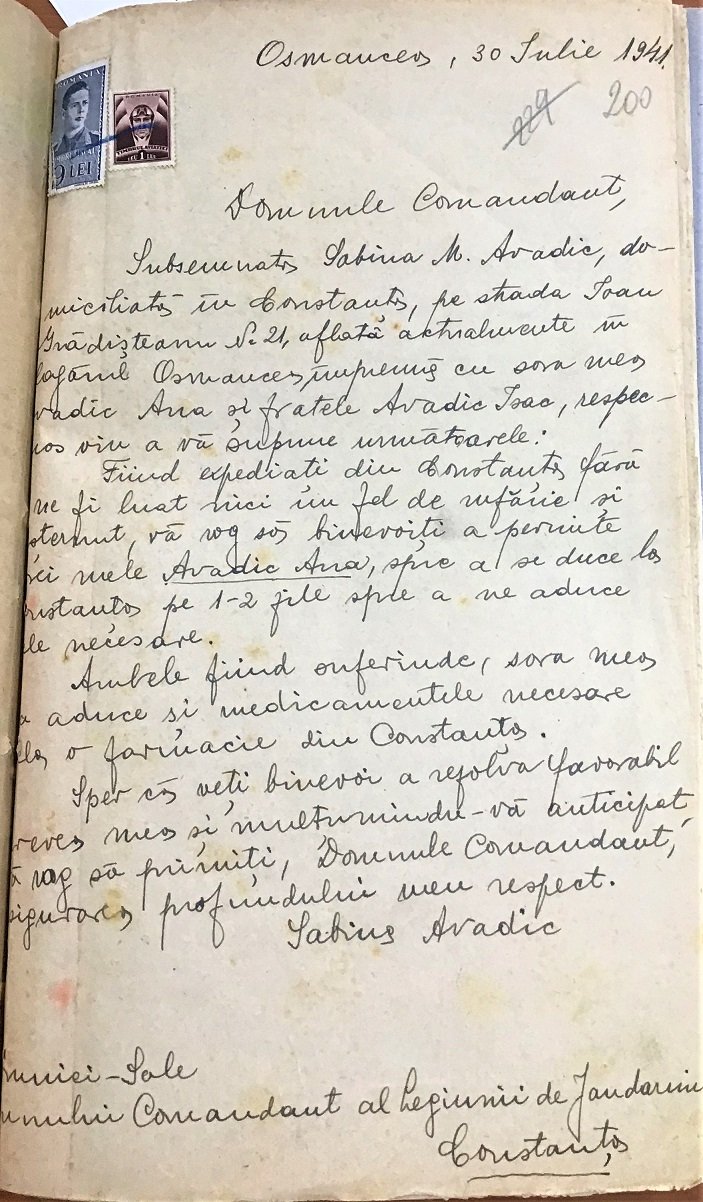 Osmancea, 30 Iulie 1941.
229 200
ROMANIA
9 LEI
ROMANIA
TIMBRUL AVIAȚIEI
1 LEU
Domnule Comandant,
Subsemnata Sabina M. Avadic, do-
miciliată în Constanța, pe strada Ioan
Grădișteanu No 21, aflată actualmente în
lagărul Osmancea, împreună cu sora mea
vadic Ana și fratele Avadic Isac, respec-
uos viu a vă supune următoarele:
Fiind expediați din Constanța fără
ne fi luat nici un fel de rufărie și
șternut, vă rog să binevoiți a permite
rei mele Avadic Ana, spre a se duce la
onstanța pe 1-2 zile spre a ne aduce
le necesare.
Ambele fiind suferinde, sora mea
a aduce și medicamentele necesare
dela o farmacie din Constanța.
Sper că veți binevoi a rezolva favorabil
rerea mea și mulțumindu-vă anticipat,
ă rog să primiți, Domnule Comandant,
sigurarea profundului meu respect.
Sabina Avadic
omniei-Sale
mnului Comandant al Legiunii de Jandarmi
Constanța